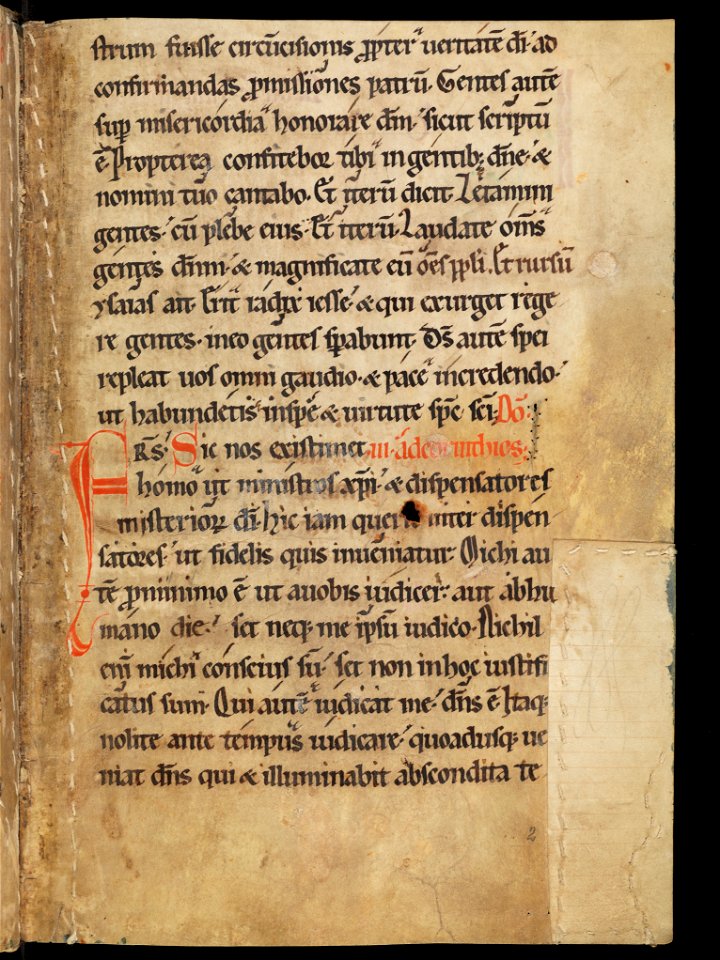 strum fuisse circūcisionis ꝓpter ueritatē dī ad
confirmandas ꝓmissiōnes patrū. Gentes autē
suꝑ misericordia honorare dm̄. sicut scriptū
ē. Propterea confitebor tibi in gentibꝫ dn̄e. &
nomini tuo cantabo. Et iterū dicit. Letamini
gentes. cū plebe eius. Et iterū. Laudate om̄s
gentes dn̄m. & magnificate eū om̄s ppl̄i. Et rursū
ysaias ait. Erit radix iesse. & qui exurget rege
re gentes. in eo gentes sꝑabunt. Ds̄ autē spei
repleat uos omni gaudio. & pace in credendo.
ut habundetis in spe & uirtute sp̄c sc̄i. Dō.
FRS̄. Sic nos existimet iii. ad corinthios.
homo ut ministros xp̄i. & dispensatores
misteriorꝝ dī. hic iam queri inter dispen
satores. ut fidelis quis inueniatur. Michi au
tē ꝓ minimo ē ut a uobis iudicer. aut ab hu
mano die. set neqꝫ me ip̄sū iudico. Nichil
eni᷒ michi conscius sū. set non in hoc iustifi
catus sum. Qui autē iudicat me. dn̄s ē. Itaqꝫ
nolite ante tempus iudicare. quoadusqꝫ ue
niat dn̄s qui & illuminabit abscondita te
2